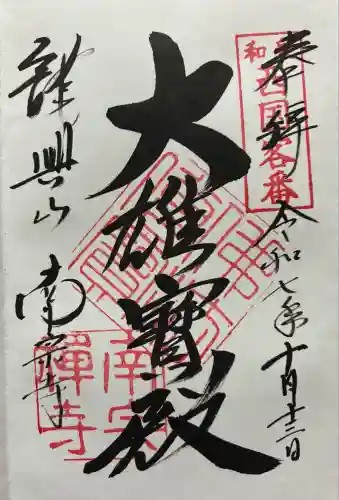 奉拝
令和七年十月十三日
和西国客番
大雄寳殿
龍興山
南宗寺
南宗禅寺